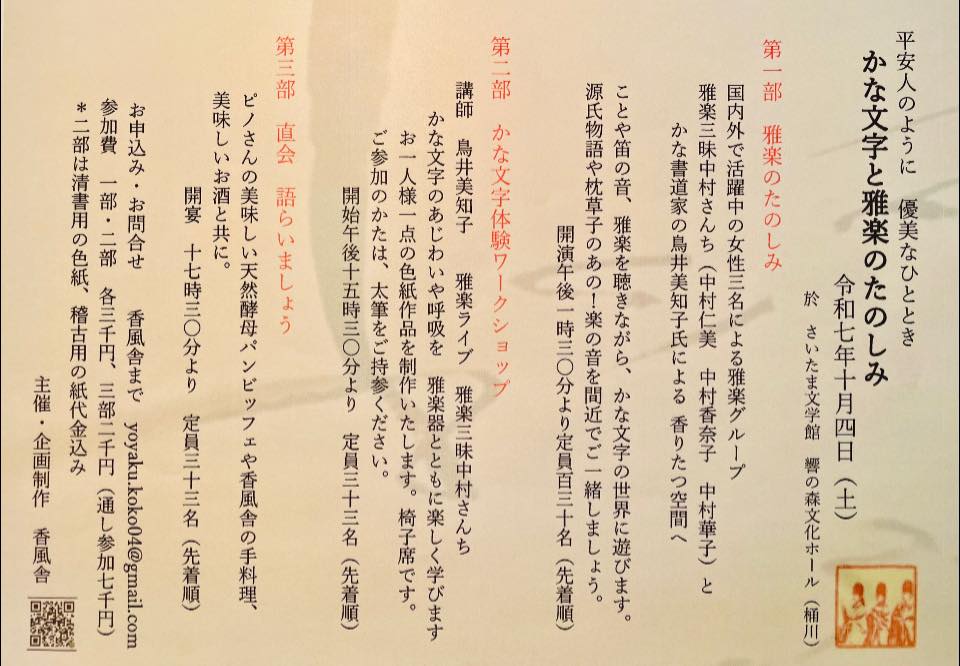 平安人のように　優美なひととき
かな文字と雅楽のたのしみ
令和七年十月四日（土）
於　さいたま文学館　響の森文化ホール（桶川）
第一部　雅楽のたのしみ
国内外で活躍中の女性三名による雅楽グループ
雅楽三昧中村さんち（中村仁美　中村香奈子　中村華子）と
かな書道家の鳥井美知子氏による 香りたつ空間へ
ことや笛の音、雅楽を聴きながら、かな文字の世界に遊びます。
源氏物語や枕草子のあの！楽の音を間近でご一緒しましょう。
開演午後一時三〇分より定員百三十名（先着順）
第二部　かな文字体験ワークショップ
講師　鳥井美知子　雅楽ライブ　雅楽三昧中村さんち
かな文字のあじわいや呼吸を　雅楽器とともに楽しく学びます
お一人様一点の色紙作品を制作いたします。椅子席です。
ご参加のかたは、太筆をご持参ください。
開始午後十五時三〇分より　定員三十三名（先着順）
第三部　直会　語らいましょう
ピノさんの美味しい天然酵母パンビッフェや香風舎の手料理、
美味しいお酒と共に。
開宴　十七時三〇分より　定員三十三名（先着順）
お申込み・お問合せ　香風舎まで　yoyaku.koko04@gmail.com
参加費　一部・二部　各三千円、三部二千円（通し参加七千円）
＊二部は清書用の色紙、稽古用の紙代金込み
主催・企画制作　香風舎